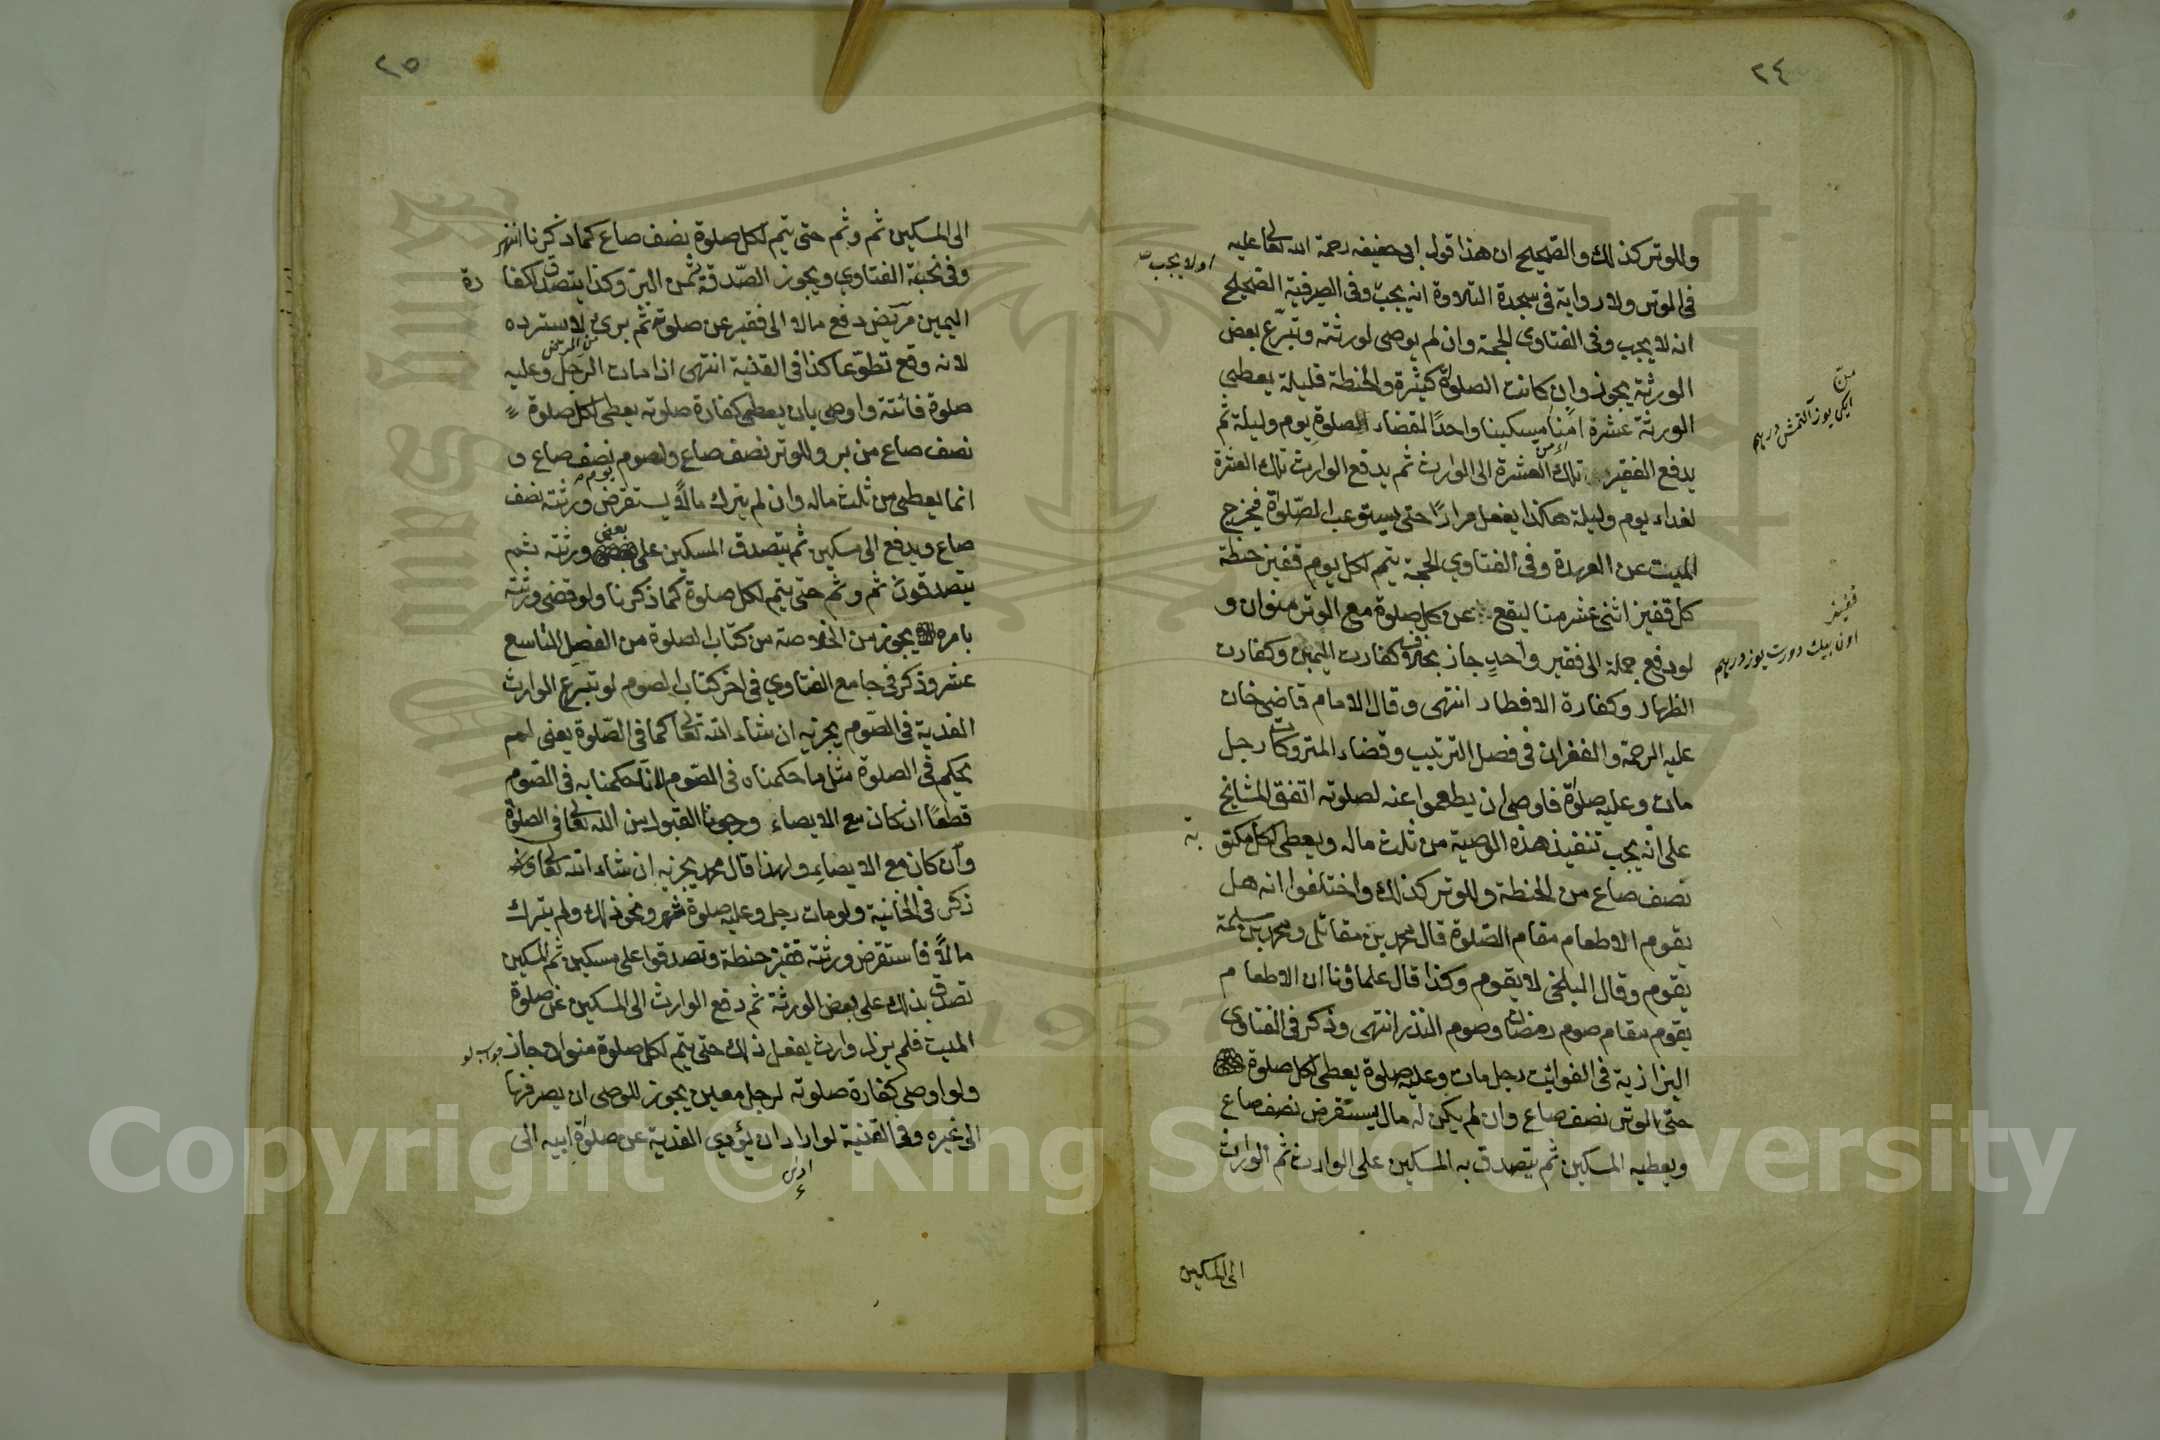 ٢٤
وللوتر كذلك والصحيح ان هذا قول ابى حنيفه رحمة الله تعالى عليه
او لا يجب
فى الوتر ولا رواية فى سجدة التلاوة انه يجب وفى الصيرفية الصحيح
انه لا يجب وفى الفتاوى الحجة وان لم يوصى لورثته وتبرع بعض
الورثة يجوز وان كانت الصلوة كثيرة والحنطة قليلة يعطى
الورثة عشرة امنا مسكينا واحدًا لقضاء الصلوة يوم وليلة ثم
منّ
ايكى يوز آلتمش درهم
يدفع الفقير تلك العشرة الى الوارث ثم يدفع الوارث تلك العشرة
لغداء يوم وليلة هكذا يفعل مرارًا حتى يستوعب الصلوة فيخرج
الميت عن العهدة وفى الفتاوى الحجة يتم لكل يوم قفيز حنطة
كل قفيز اثنى عشر منا ليقع عن كل صلوة مع الوتر منوان و
قفيز
اون بيك دورت يوز درهم
لو دفع جملة الى فقير واحدٍ جاز بخلاف كفارت اليمين وكفارت
الظهار وكفارة الافطار انتهى وقال الامام قاضى خان
عليه الرحمة والغفران فى فصل الترتيب وقضاء المتروكات رجل
مات وعليه صلوة فاوصى ان يطعموا عنه لصلوته اتفق المشايخ
على انه يجب تنفيذ هذه الوصية من ثلث ماله ويعطى لكل مكتوبة
نصف صاع من الحنطة وللوتر كذلك واختلفوا انه هل
يقوم الاطعام مقام الصلوة قال محمد بن مقاتل ومحمد بن سلمة
يقوم وقال البلخى لا يقوم وكذا قال علماؤنا ان الاطعام
يقوم مقام صوم رمضان وصوم النذر انتهى وذكر فى الفتاوى
البزازية فى الفوائت رجل مات وعليه صلوة يعطى لكل صلوة
حتى الوتر نصف صاع وان لم يكن له مال يستقرض نصف صاع
ويعطيه المسكين ثم يتصدق به المسكين على الوارث ثم الوارث
الى المسكين
٢٥
الى المسكين ثم وثم حتى يتم لكل صلوة نصف صاع كما ذكرنا انتهى
وفى نخبة الفتاوى ويجوز الصدقة ثمن البر وكذا يتصدق لكفارة
اليمين مريض دفع مالا الى فقير عن صلوته ثم برئ لا يسترده
من المرض
لانه وقع تطوعا كذا فى القنية انتهى اذا مات الرجل وعليه
صلوة فائتة واوصى بان يعطى كفارة صلوته يعطى لكل صلوة
نصف صاع من بر وللوتر نصف صاع ولصوم نصف صاع و
يوم
انما يعطى من ثلث ماله وان لم يترك مالاً يستقرض ورثته نصف
صاع ويدفع الى مسكين ثم يتصدق المسكين على بعض ورثته ثم
يتصدقون ثم وثم حتى يتم لكل صلوة كما ذكرنا ولو قضى ورثته
بامره يجوز من الخلاصة من كتاب الصلوة من الفصل التاسع
عشر وذكر فى جامع الفتاوى فى اخر كتاب الصوم لو تبرع الوارث
الفدية فى الصوم يجزيه ان شاء الله تعالى كما فى الصلوة يعنى لم
يحكم فى الصلوة مثل ما حكمناه فى الصوم لانا حكمنا به فى الصوم
قطعًا ان كان مع الايصاء ورجونا القبول من الله تعالى فى الصلوة
وان كان مع الايصاء ولهذا قال محمد يجزيه ان شاء الله تعالى وقد
ذكر فى الخانية ولو مات رجل وعليه صلوة شهر ونحو ذلك ولم يترك
مالاً فاستقرض ورثته قفيز حنطة وتصدقوا على مسكين ثم المسكين
تصدق بذلك على بعض الورثة ثم دفع الوارث الى المسكين عن صلوة
الميت فلم يزل وارث يفعل ذلك حتى يتم لكل صلوة منوان جاز
جواب لو
ولو اوصى كفارة صلوته لرجل معين يجوز للوصى ان يصرفها
الى غيره وفى القنية لو اراد ان يؤدى الفدية عن صلوة ابيه الى
Copyright © King Saud University
1957